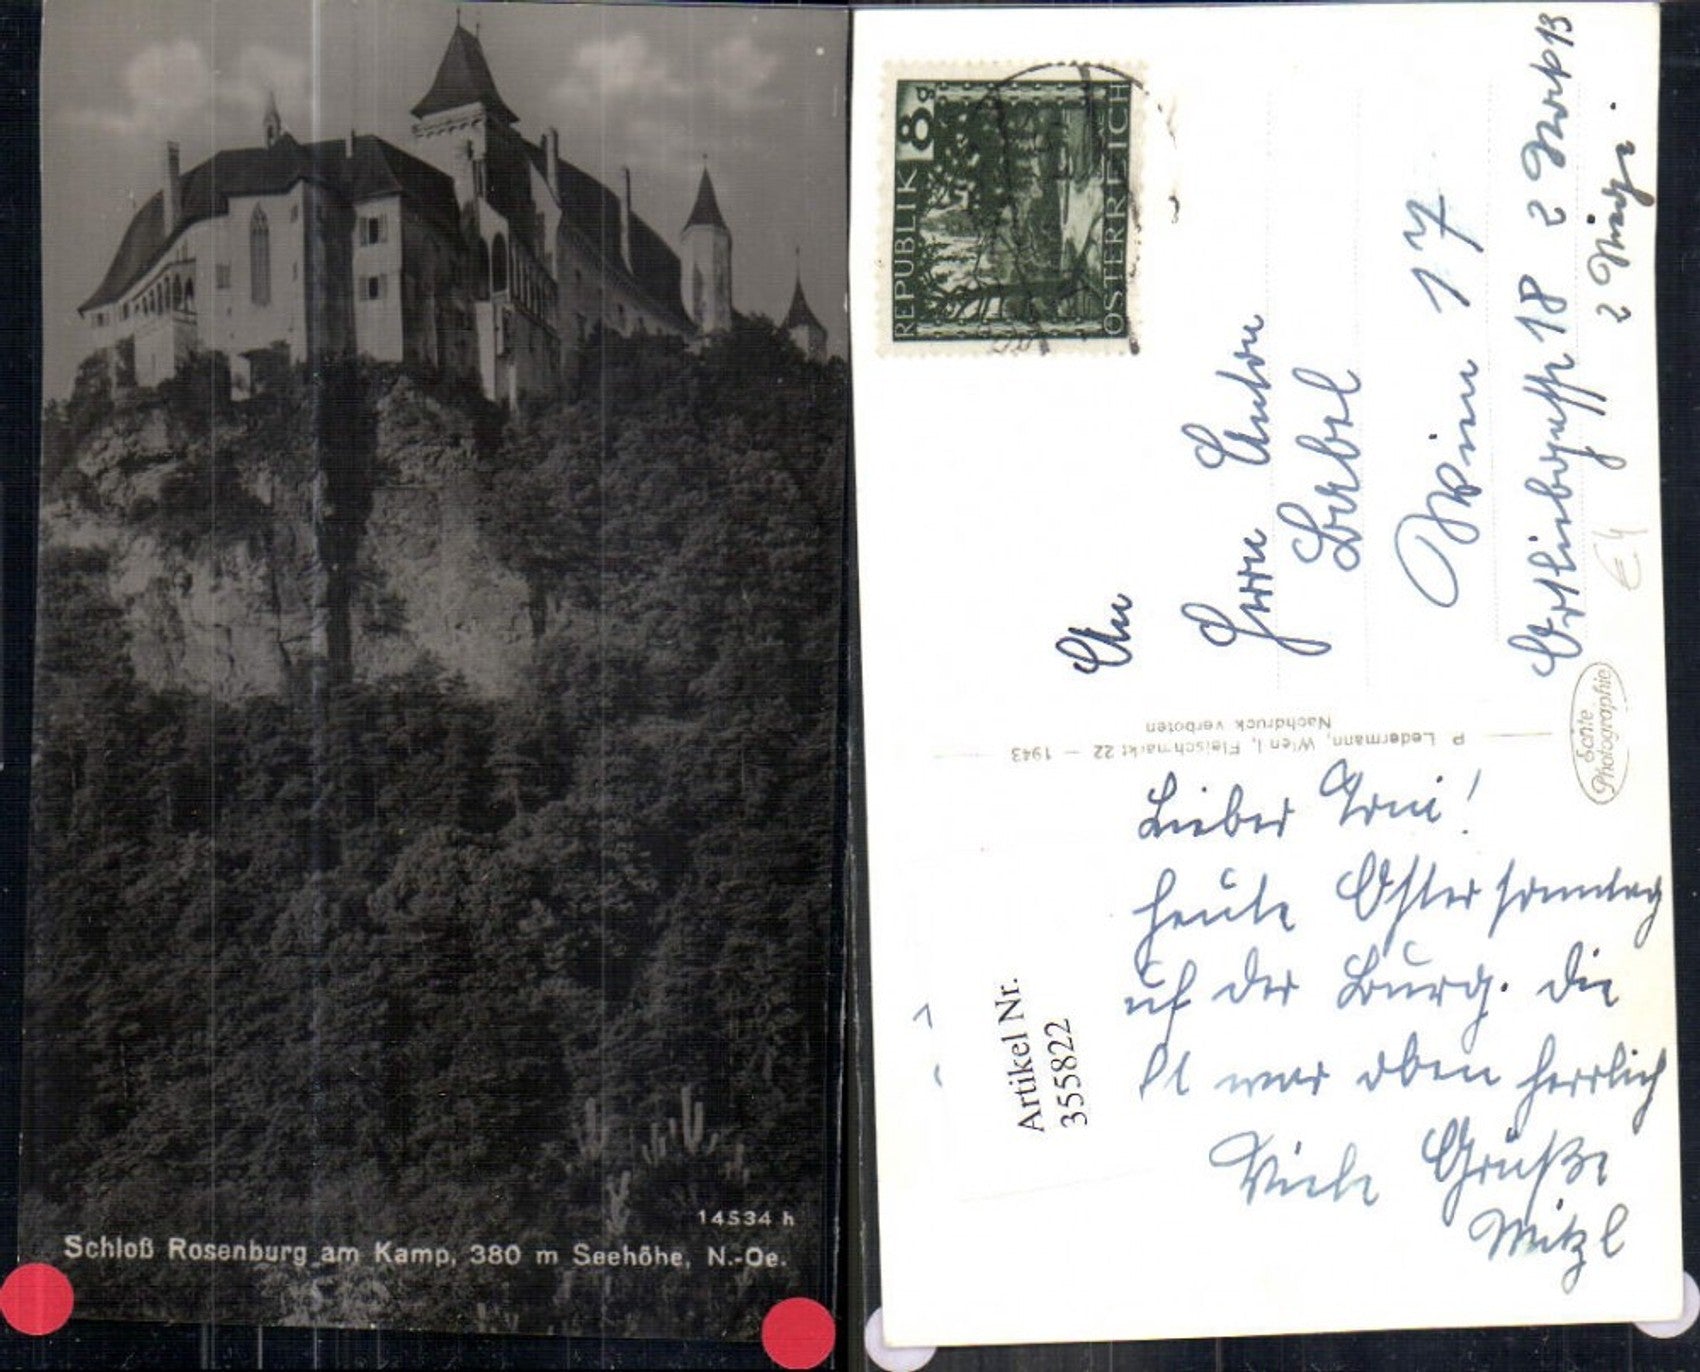 14534 h
Schloß Rosenburg am Kamp, 380 m Seehöhe, N.-Oe.
8 g
REPUBLIK
ÖSTERREICH
An
Herrn Anton
Bebel
Wien 17
18 2 Stock 13
2 Stiege.
€4
P. Ledermann, Wien I, Fleischmarkt 22 — 1943
Nachdruck verboten
Echte
Photographie
Artikel Nr.
355822
Lieber Toni!
heute Ostersonntag
auf der Burg. die
ist war oben herrlich
Viele Grüße
Mitzl